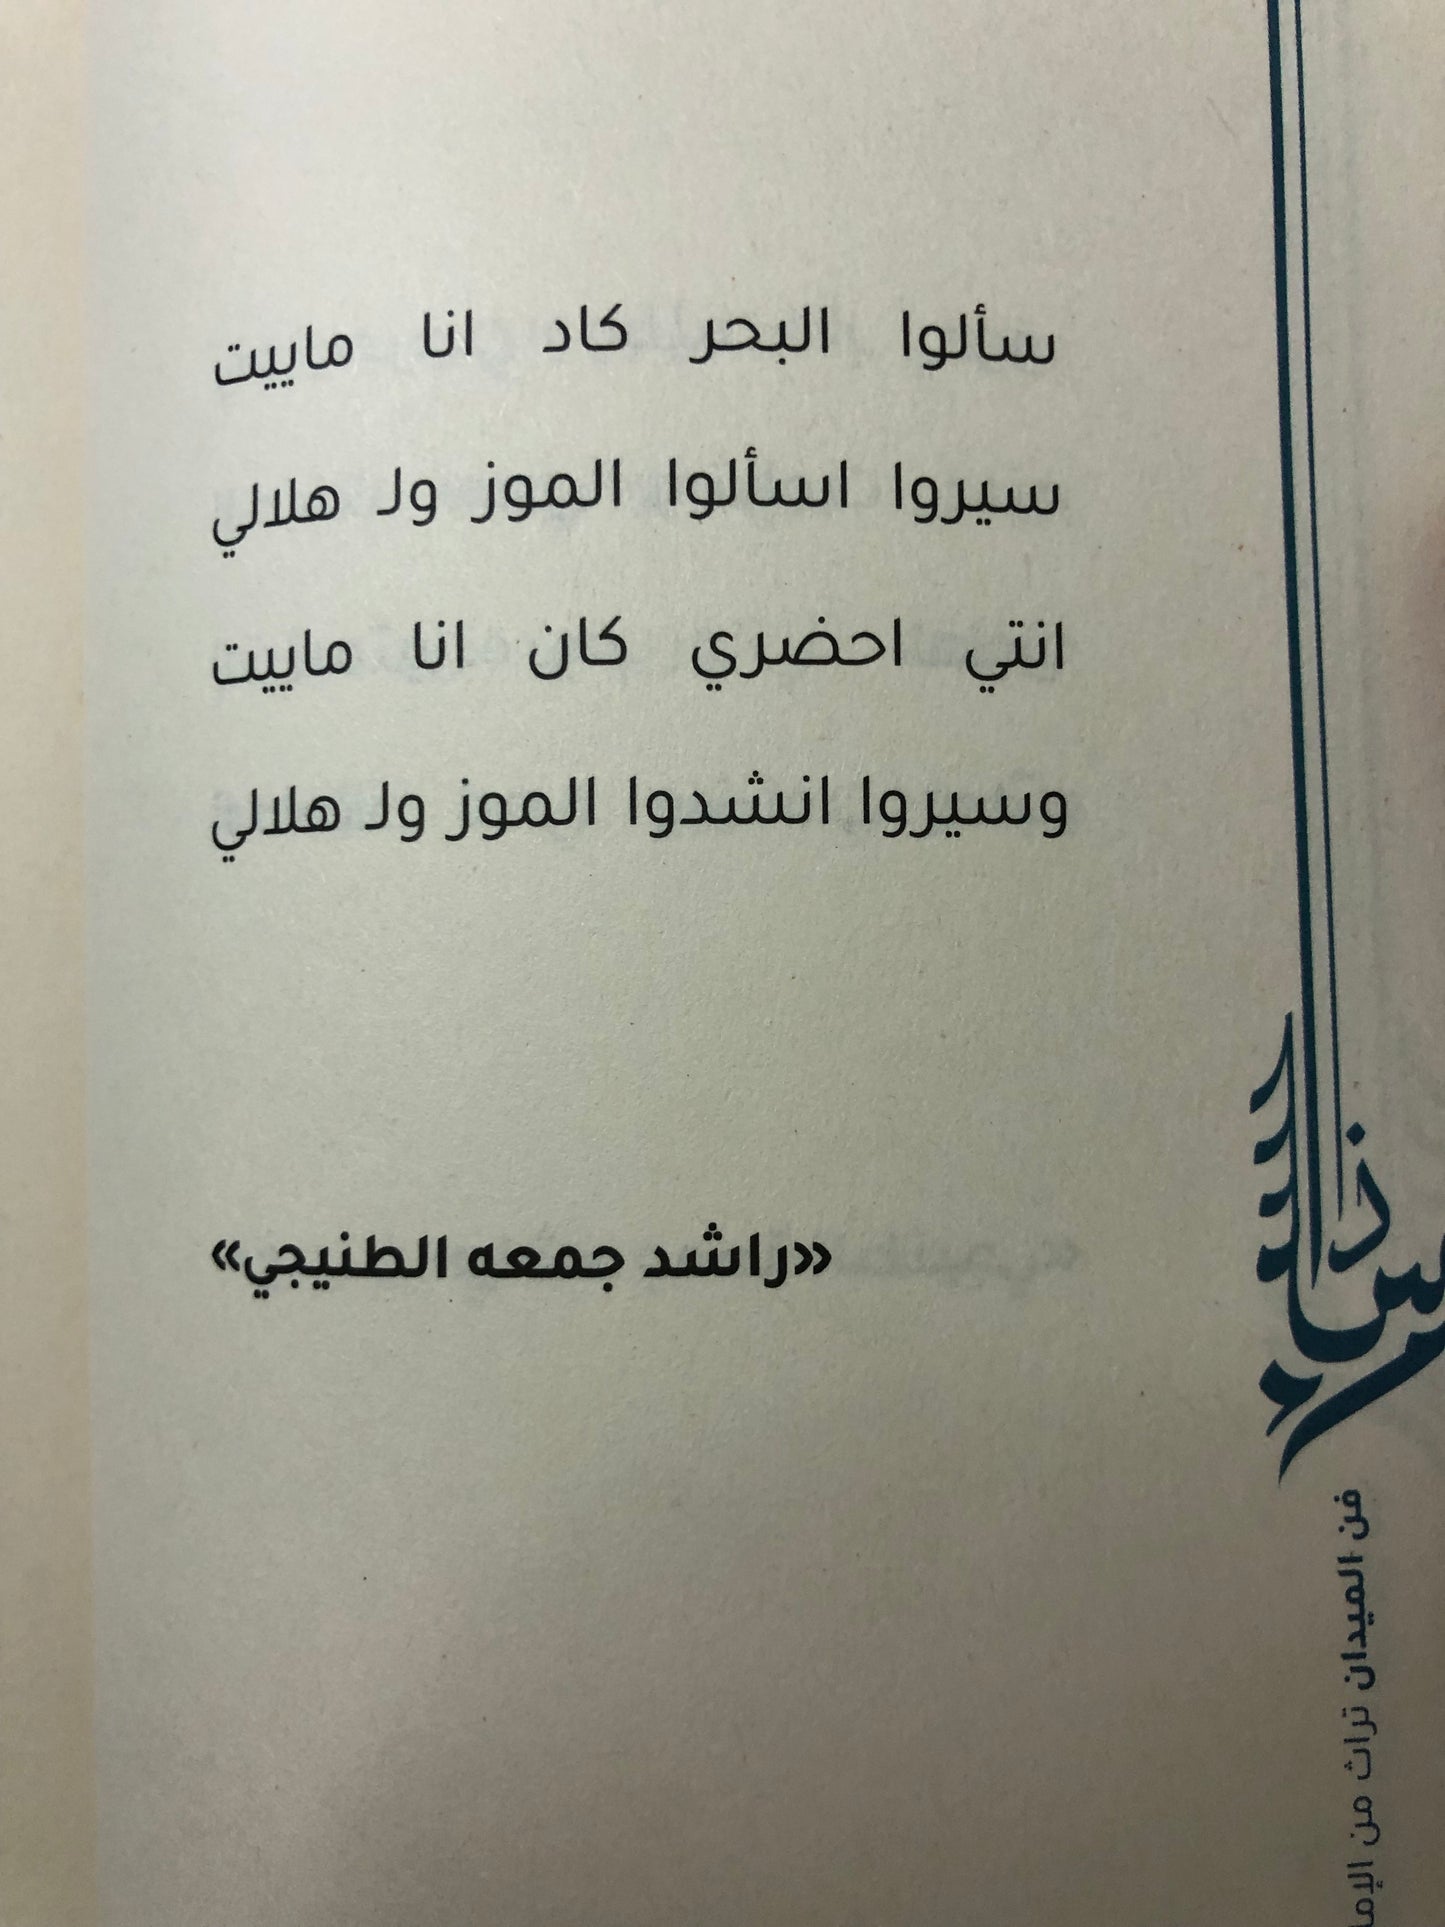 سألوا البحر كاد انا ماييت
سيروا اسألوا الموز ولـ هلالي
انتي احضري كان انا ماييت
وسيروا انشدوا الموز ولـ هلالي
«راشد جمعه الطنيجي»
فن الميدان تراث من الإما